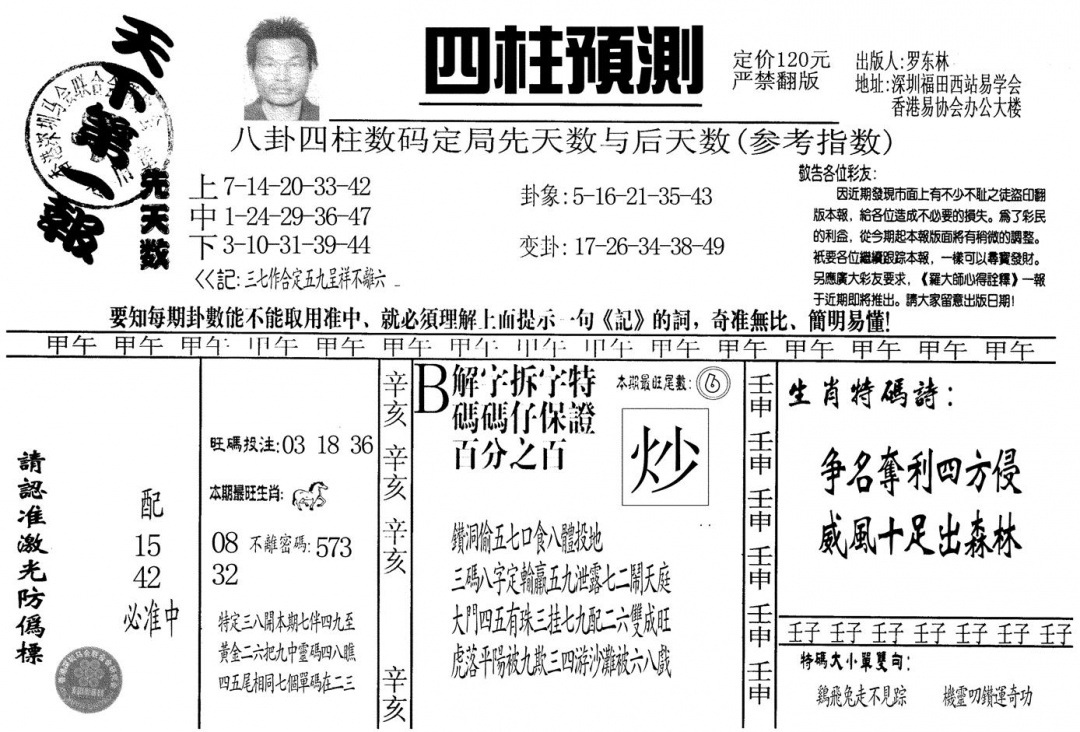 天下第一報
四柱預測
定价120元
严禁翻版
出版人:罗东林
地址:深圳福田西站易学会
香港易协会办公大楼
八卦四柱数码定局先天数与后天数(参考指数)
先天数
上 7-14-20-33-42
中 1-24-29-36-47
下 3-10-31-39-44
卦象:5-16-21-35-43
变卦:17-26-34-38-49
<<記:三七作合定五九呈祥不離六
敬告各位彩友:
因近期發現市面上有不少不耻之徒盜印翻
版本報,給各位造成不必要的損失。爲了彩民
的利益,從今期起本報版面將有稍微的調整。
衹要各位繼續跟踪本報,一樣可以尋寶發財。
另應廣大彩友要求,《羅大師心得詮釋》一報
于近期即將推出。請大家留意出版日期!
要知每期卦數能不能取用准中、就必須理解上面提示一句《記》的詞,奇准無比、簡明易懂!
甲午 甲午 甲午 甲午 甲午 甲午 甲午 甲午 甲午 甲午 甲午 甲午 甲午 甲午 甲午
請認准激光防僞標
配
15
42
必准中
旺碼投注:03 18 36
本期最旺生肖:
08 不離密碼:573
32
特定三八開本期七伴四九至
黃金二六把九中靈碼四八瞧
四五尾相同七個單碼在二三
辛亥
辛亥
辛亥
辛亥
B
解字拆字特
碼碼仔保證
百分之百
本期最旺尾數:6
炒
鑽洞偷五七口食八體投地
三碼八字定輸贏五九泄露七二鬧天庭
大門四五有珠三挂七九配二六雙成旺
虎落平陽被九欺三四游沙灘被六八戲
壬申
壬申
壬申
壬申
壬申
壬申
生肖特碼詩:
争名奪利四方侵
威風十足出森林
壬子 壬子 壬子 壬子 壬子 壬子 壬子
特碼大小單雙句:
鷄飛兔走不見踪 機靈叨鑽運奇功